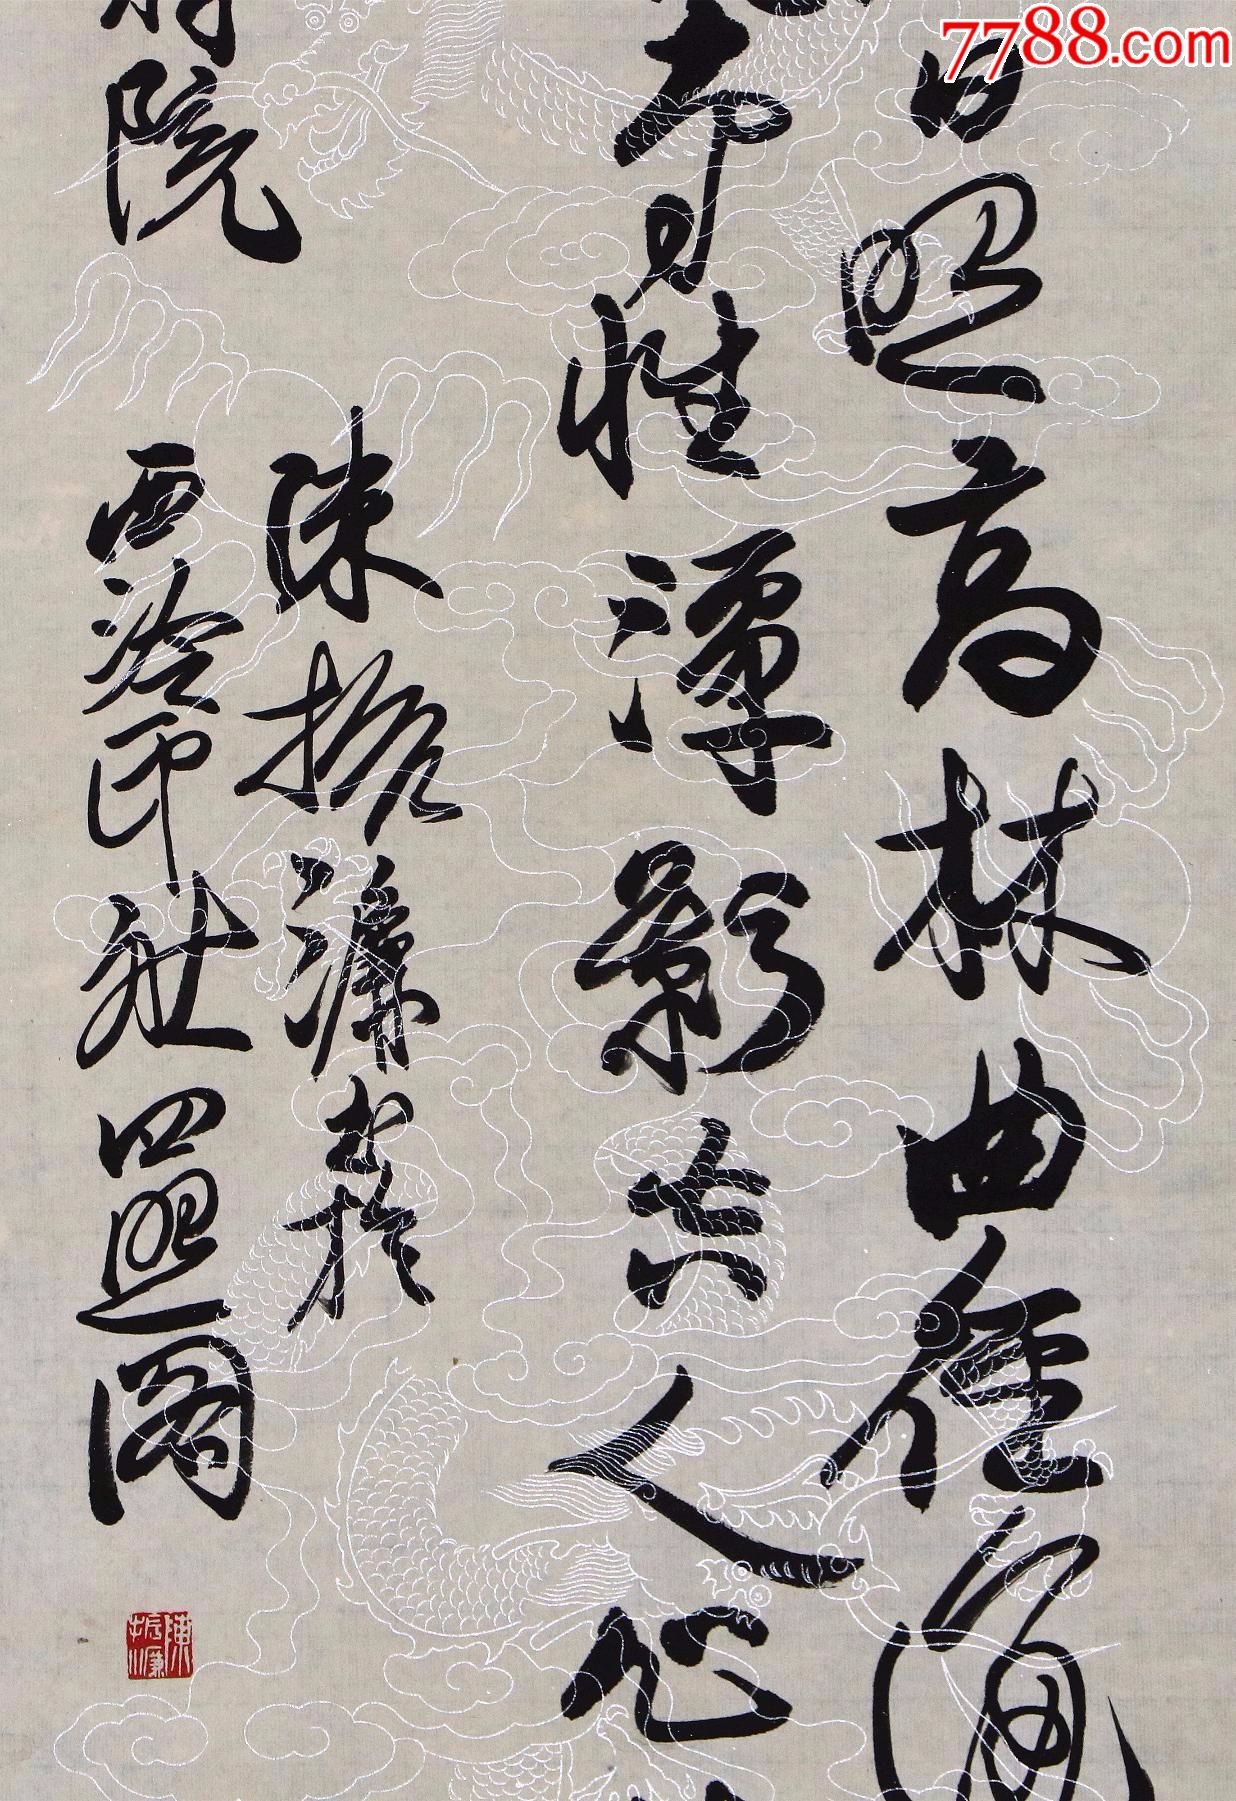 日照高林曲径通
性潭影空人心
院
陈振濂书于
西泠印社四照阁
陳振濂
7788.com